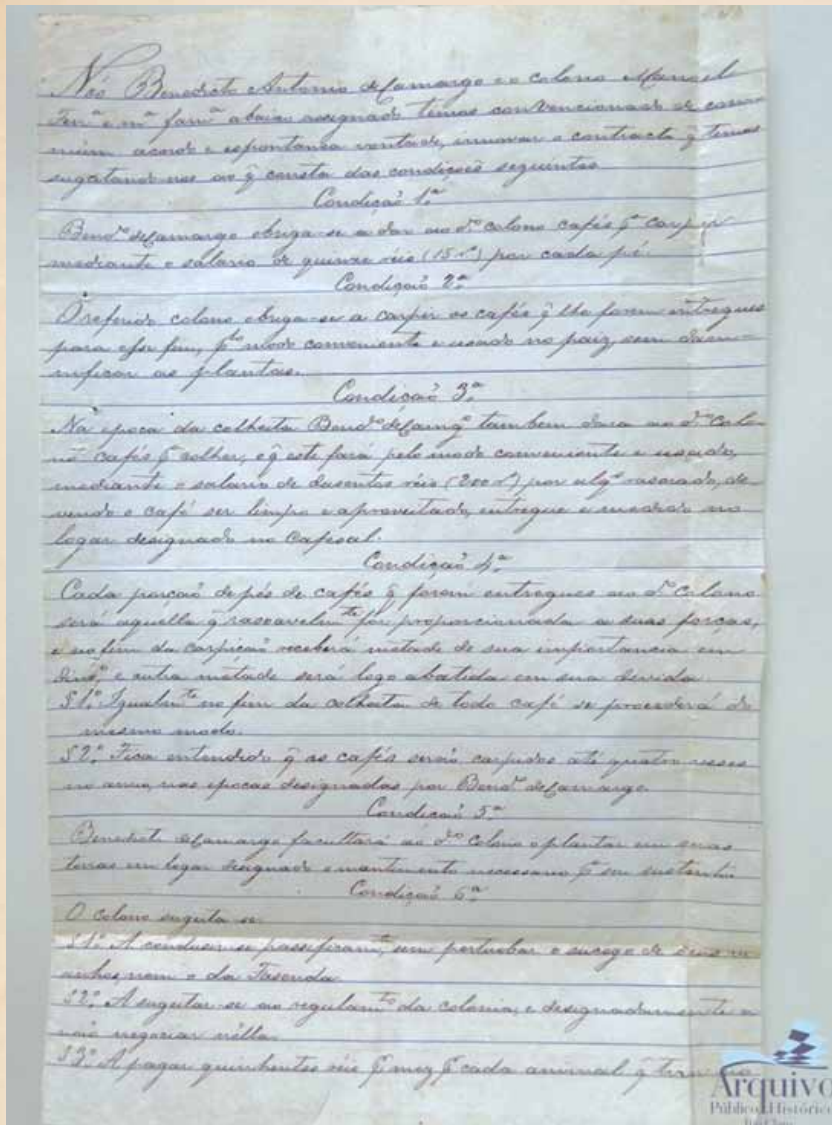 Nós Benedicto Antonio de Camargo e o colono Manoel
Ferrª e mª famª abaixo assignado temos convencionado de com-
mum acordo e espontanea vontade, innovar o contracto q̃ temos
sugeitando nos ao q̃ consta das condições seguintes
Condição 1.ª
Bendᵒ de Camargo obriga-se a dar ao dᵒ colono cafés pª carpir
mediante o salario de quinze réis (15 rˢ) por cada pé.
Condição 2.ª
O referido colono obriga-se a carpir os cafés q̃ lhe forem entregues
para esse fim, pᵗᵒ modo conveniente e usado no paiz, sem dam-
nificar as plantas.
Condição 3.ª
Na epoca da colheita Bendᵒ de Camgᵒ tambem dara ao dᵒ Colo-
no cafés pª colher, e q̃ este fará pelo modo conveniente e usado,
mediante o salario de dusentos réis (200 rˢ) por alqᵉ rasorado, de-
vendo o café ser limpo e aproveitado, entregue e medido no
logar designado no Cafesal.
Condição 4.ª
Cada porçaõ de pés de cafés q̃ forem entregues ao dᵒ Colono
será aquella q̃ rasoavelmᵗᵉ fôr proporcionada a suas forças,
e no fim da carpição receberá metade de sua importancia em
dinhᵒ, e outra metade será logo abatida em sua devida
§1.º Igualmᵗᵉ no fim da colheita de todo café se procederá do
mesmo modo.
§2.º Fica entendido q̃ os cafés seraõ carpidos até quatro veses
no anno, nas epocas designadas por Bendᵒ de Camargo
Condição 5.ª
Benedicto de Camargo facultará ao dᵒ Colono o plantar em suas
terras em logar designado o mantimento necessario pª seu sustento
Condição 6.ª
O colono sugeita-se
§1.º A condusir-se passificamᵗᵉ, sem perturbar o sucego de seus vi-
sinhos, nem o da Fasenda
§2.º A sugeitar-se ao regulamᵗᵒ da colonia, e designadamente a
não negociar nélla.
§3.º A pagar quinhentos réis pʳ mez pʳ cada animal q̃
Arquivo
Público e Histórico
Rio Claro